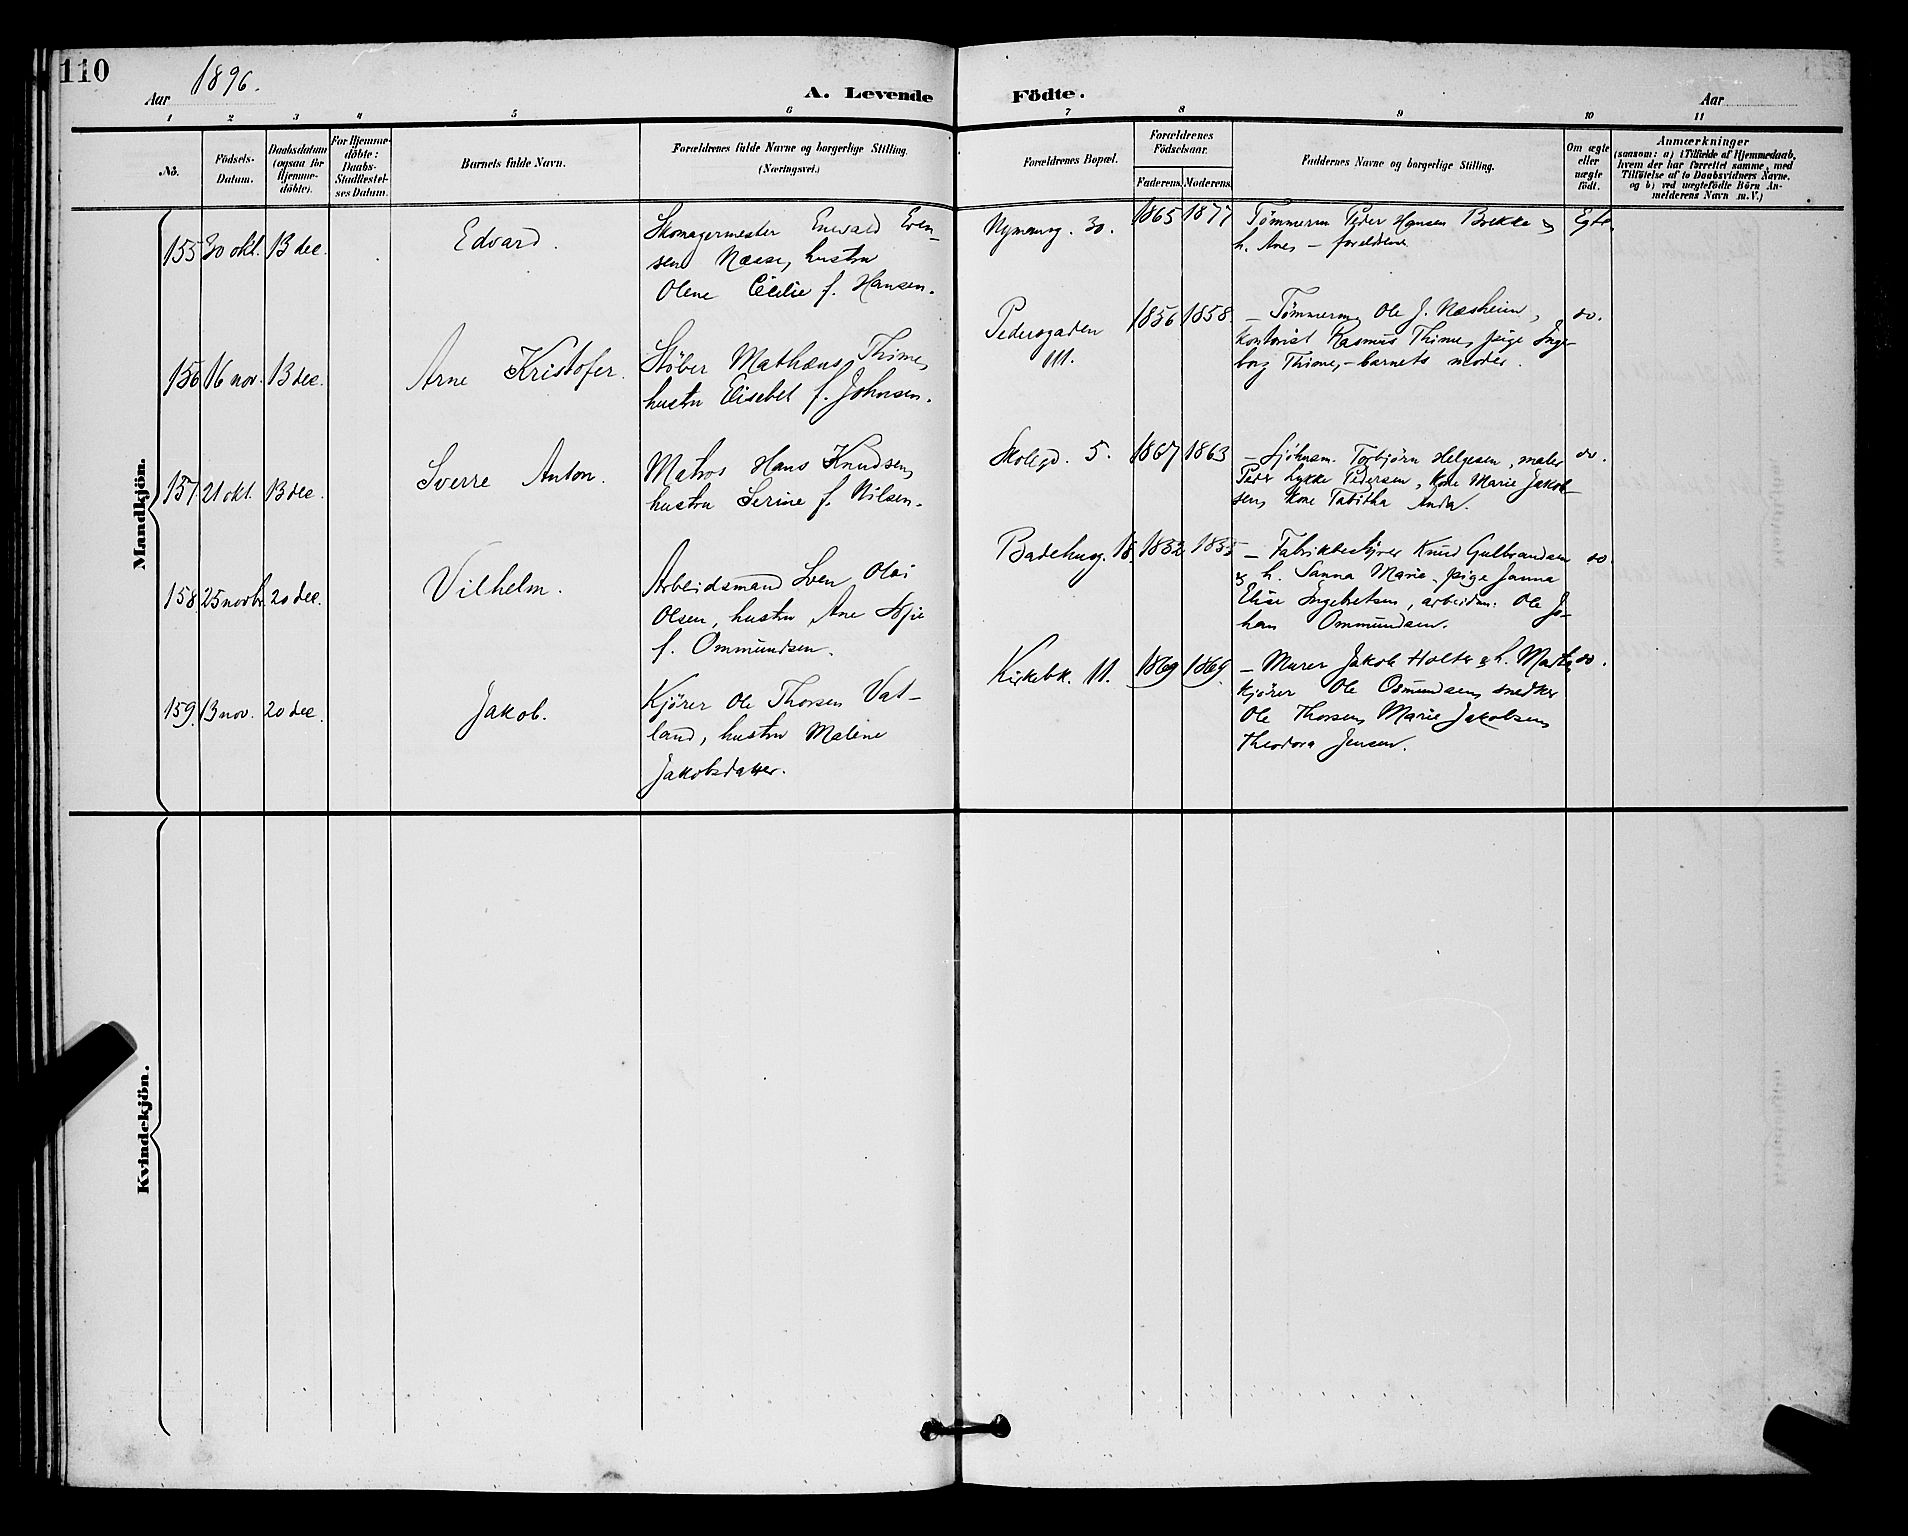 110
Aar 1896.
A. Levende Födte.
Aar
1 2 3 4 5 6 7 8 9 10 11
No.
Födsels-Datum.
Daabsdatum (ogsaa for Hjemme-döbte).
For Hjemme-döbte: Daabs-Stadfæstelses Datum.
Barnets fulde Navn.
Forældrenes fulde Navne og borgerlige Stilling. (Næringsvei.)
Forældrenes Bopæl.
Forældrenes Födselsaar.
Faderens. Moderens.
Faddernes Navne og borgerlige Stilling.
Om ægte eller uægte födt.
Anmærkninger
(saasom: a) i Tilfælde af Hjemmedaab,
hvem der har forrettet samme, med
Tilföielse af to Daabsvidners Navne,
og b) ved uægtefödte Börn An-
melderens Navn m. V.)
Mandkjön.
155 30 okt. 13 dec. Edvard.
Skomagermester Enevald Even-
sen Næsse, hustru
Olene Cecilie f. Hansen.
Nymansg. 30. 1865 1877
Tømmerm Peder Hansen Brekke &
h. Ane, – forældrene
Egte.
156 16 nov. 13 dec. Arne Kristofer.
Støber Mathæus Thime,
hustru Elisabet f. Johnsen.
Pedersgaden
111.
1856 1858.
– Tømmerm. Ole J. Næsheim,
kontorist Rasmus Thime, pige Inge-
borg Thime, – barnets moder.
do.
157 21 okt. 13 dec. Sverre Anton.
Matros Hans Knudsen,
hustru Serine f. Nilsen.
Skolegd. 5. 1867 1863
– Sjøhusm. Torbjørn Helgesen, maler
Peder Lykke Pedersen, Kone Marie Jakob-
sen, Kone Tabitha Anda.
do.
158 25 novbr. 20 dec. Vilhelm.
Arbeidsmand Sven Olai
Olsen, hustru Ane
f. Ommundsen.
Badehusg. 18. 1852 1855
– Fabrikbestyrer Knud Gulbrandsen
& h. Sanna Marie, pige Janna
Elise Ingebretsen, arbeidsm: Ole Jo-
han Ommundsen.
do.
159. 13 nov. 20 dec. Jakob.
Kjører Ole Thorsen Vat-
land, hustru Malene
Jakobsdatter.
Kirkebk. 11. 1869 1869.
– Murer Jakob Holter & h. Marta,
kjører Ole Osmundsen, snedker
Ole Thorsen, Marie Jakobsen,
Theodora Jensen.
do.
Kvindekjön.